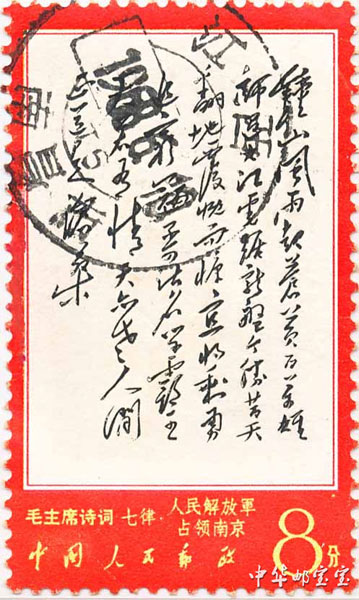 鍾山風雨起蒼黄百万雄
師過大江虎踞龍盤今勝昔天
翻地覆慨而慷宜将剩勇
追窮寇不可沽名学霸王
天若有情天亦老人間
正道是滄桑
江西
南昌
毛主席诗词 七律·人民解放軍
占领南京
中国人民邮政
8分
中华邮宝宝